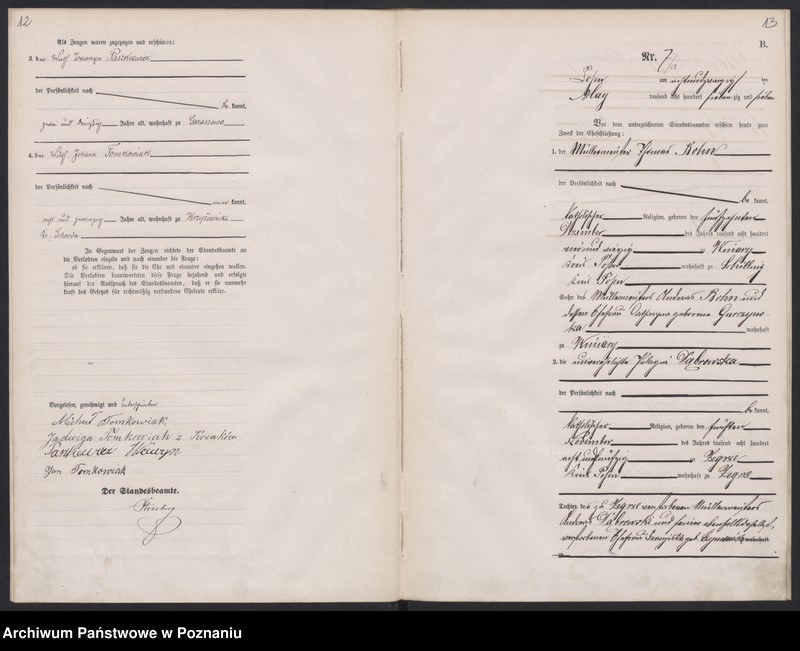 12
Als Zeugen waren zugezogen und erschienen:
3. der
der Persönlichkeit nach
be kannt,
zwei und dreißig Jahre alt, wohnhaft zu
4. der Johann Tomkowiak
der Persönlichkeit nach
kannt,
und zwanzig Jahre alt, wohnhaft zu
In Gegenwart der Zeugen richtete der Standesbeamte an
die Verlobten einzeln und nach einander die Frage:
ob sie erklären, daß sie die Ehe mit einander eingehen wollen.
Die Verlobten beantworteten diese Frage bejahend und erfolgte
hierauf der Ausspruch des Standesbeamten, daß er sie nunmehr
kraft des Gesetzes für rechtmäßig verbundene Eheleute erkläre.
Vorgelesen, genehmigt und unterschrieben
Michał Tomkowiak
Jadwiga Tomkowiak z
Jan Tomkowiak
Der Standesbeamte.
13
B.
Nr. 7
Posen am achtundzwanzigsten
May tausend acht hundert siebenzig und sieben
Vor dem unterzeichneten Standesbeamten erschien heute zum
Zweck der Eheschließung:
1. der Müllermeister Thomas Behn
der Persönlichkeit nach
be kannt,
katholischer Religion, geboren den fünfzehnten
Dezember des Jahres tausend acht hundert
vier und vierzig zu Winiary
Kreis Posen wohnhaft zu Schilling
Kreis Posen
Sohn des Müllermeisters Andreas Behn und
dessen Ehefrau Catharina geborene
wohnhaft
zu Winiary
2. die unverehelichte Pelagia Dąbrowska
der Persönlichkeit nach
be kannt,
katholischer Religion, geboren den fünften
des Jahres tausend acht hundert
acht und fünfzig zu Zegrze
Kreis Posen wohnhaft zu Zegrze
Tochter des zu Zegrze verstorbenen Müllermeisters
Andreas Dąbrowski und seiner ebenfalls daselbst
verstorbenen Ehefrau Franziska geb. wohnhaft
zu
Archiwum Państwowe w Poznaniu